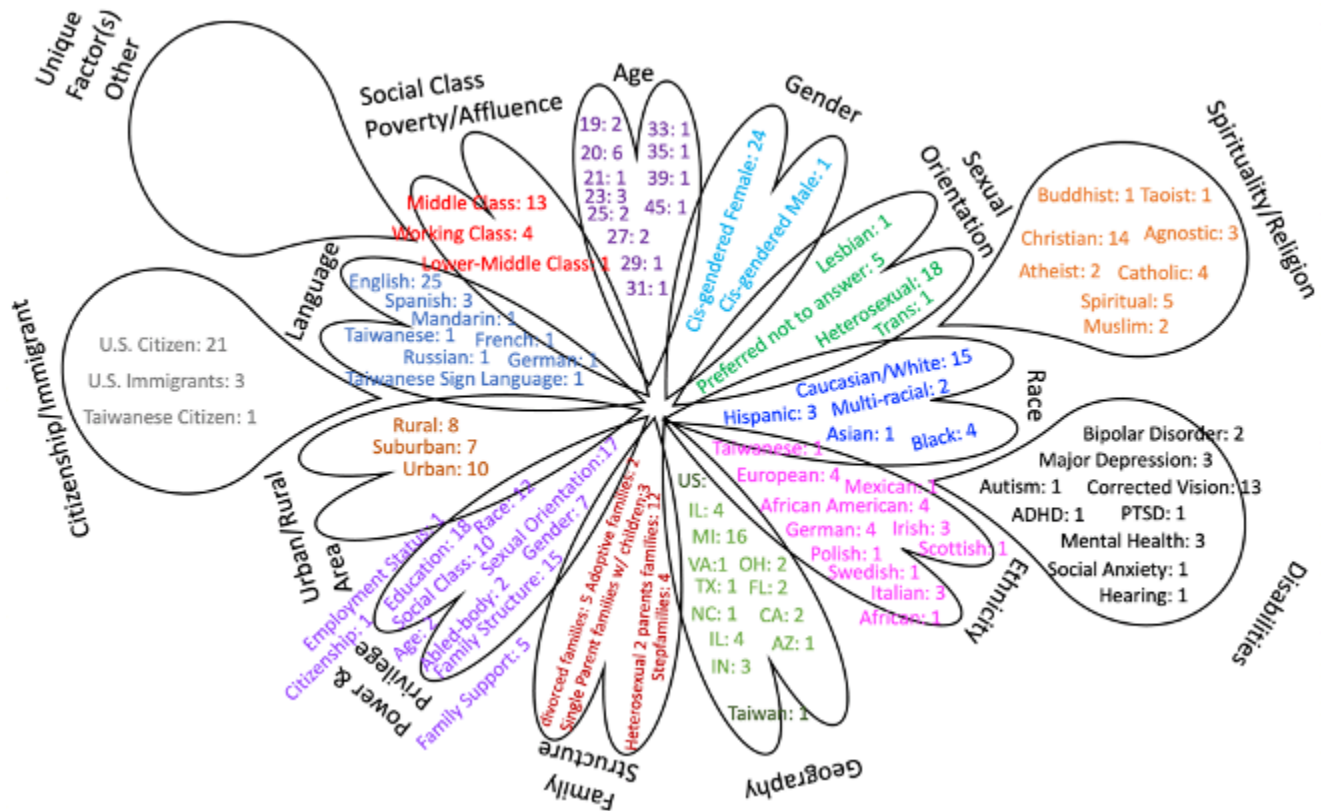 Unique
Factor(s)
Other
Social Class
Poverty/Affluence
Middle Class: 13
Working Class: 4
Lower-Middle Class: 1
Age
19: 2
20: 6
21: 1
23: 3
25: 2
27: 2
29: 1
31: 1
33: 1
35: 1
39: 1
45: 1
Gender
Cis-gendered Female: 24
Cis-gendered Male: 1
Sexual
Orientation
Lesbian: 1
Preferred not to answer: 5
Heterosexual: 18
Trans: 1
Spirituality/Religion
Buddhist: 1 Taoist: 1
Christian: 14 Agnostic: 3
Atheist: 2 Catholic: 4
Spiritual: 5
Muslim: 2
Race
Caucasian/White: 15
Hispanic: 3 Multi-racial: 2
Asian: 1 Black: 4
Disabilities
Bipolar Disorder: 2
Major Depression: 3
Autism: 1 Corrected Vision: 13
ADHD: 1 PTSD: 1
Mental Health: 3
Social Anxiety: 1
Hearing: 1
Ethnicity
Taiwanese: 1
European: 4
Mexican: 1
African American: 4
German: 4 Irish: 3
Polish: 1 Scottish: 1
Swedish: 1
Italian: 3
African: 1
Geography
US:
IL: 4
MI: 16
VA:1 OH: 2
TX: 1 FL: 2
NC: 1 CA: 2
IL: 4 AZ: 1
IN: 3
Taiwan: 1
Family
Structure
divorced families: 5 Adoptive families: 2
Single Parent families w/ children:3
Heterosexual 2 parents families: 12
Stepfamilies: 4
Power &
Privilege
Employment Status: 1
Citizenship: 1
Education: 18 Race: 12
Social Class: 10 Sexual Orientation:17
Age:
Abled-body: 2 Gender: 7
Family Structure: 15
Family Support: 5
Urban/Rural
Area
Rural: 8
Suburban: 7
Urban: 10
Citizenship/Immigrant
U.S. Citizen: 21
U.S. Immigrants: 3
Taiwanese Citizen: 1
Language
English: 25
Spanish: 3
Mandarin: 1
Taiwanese: 1 French: 1
Russian: 1 German: 1
Taiwanese Sign Language: 1